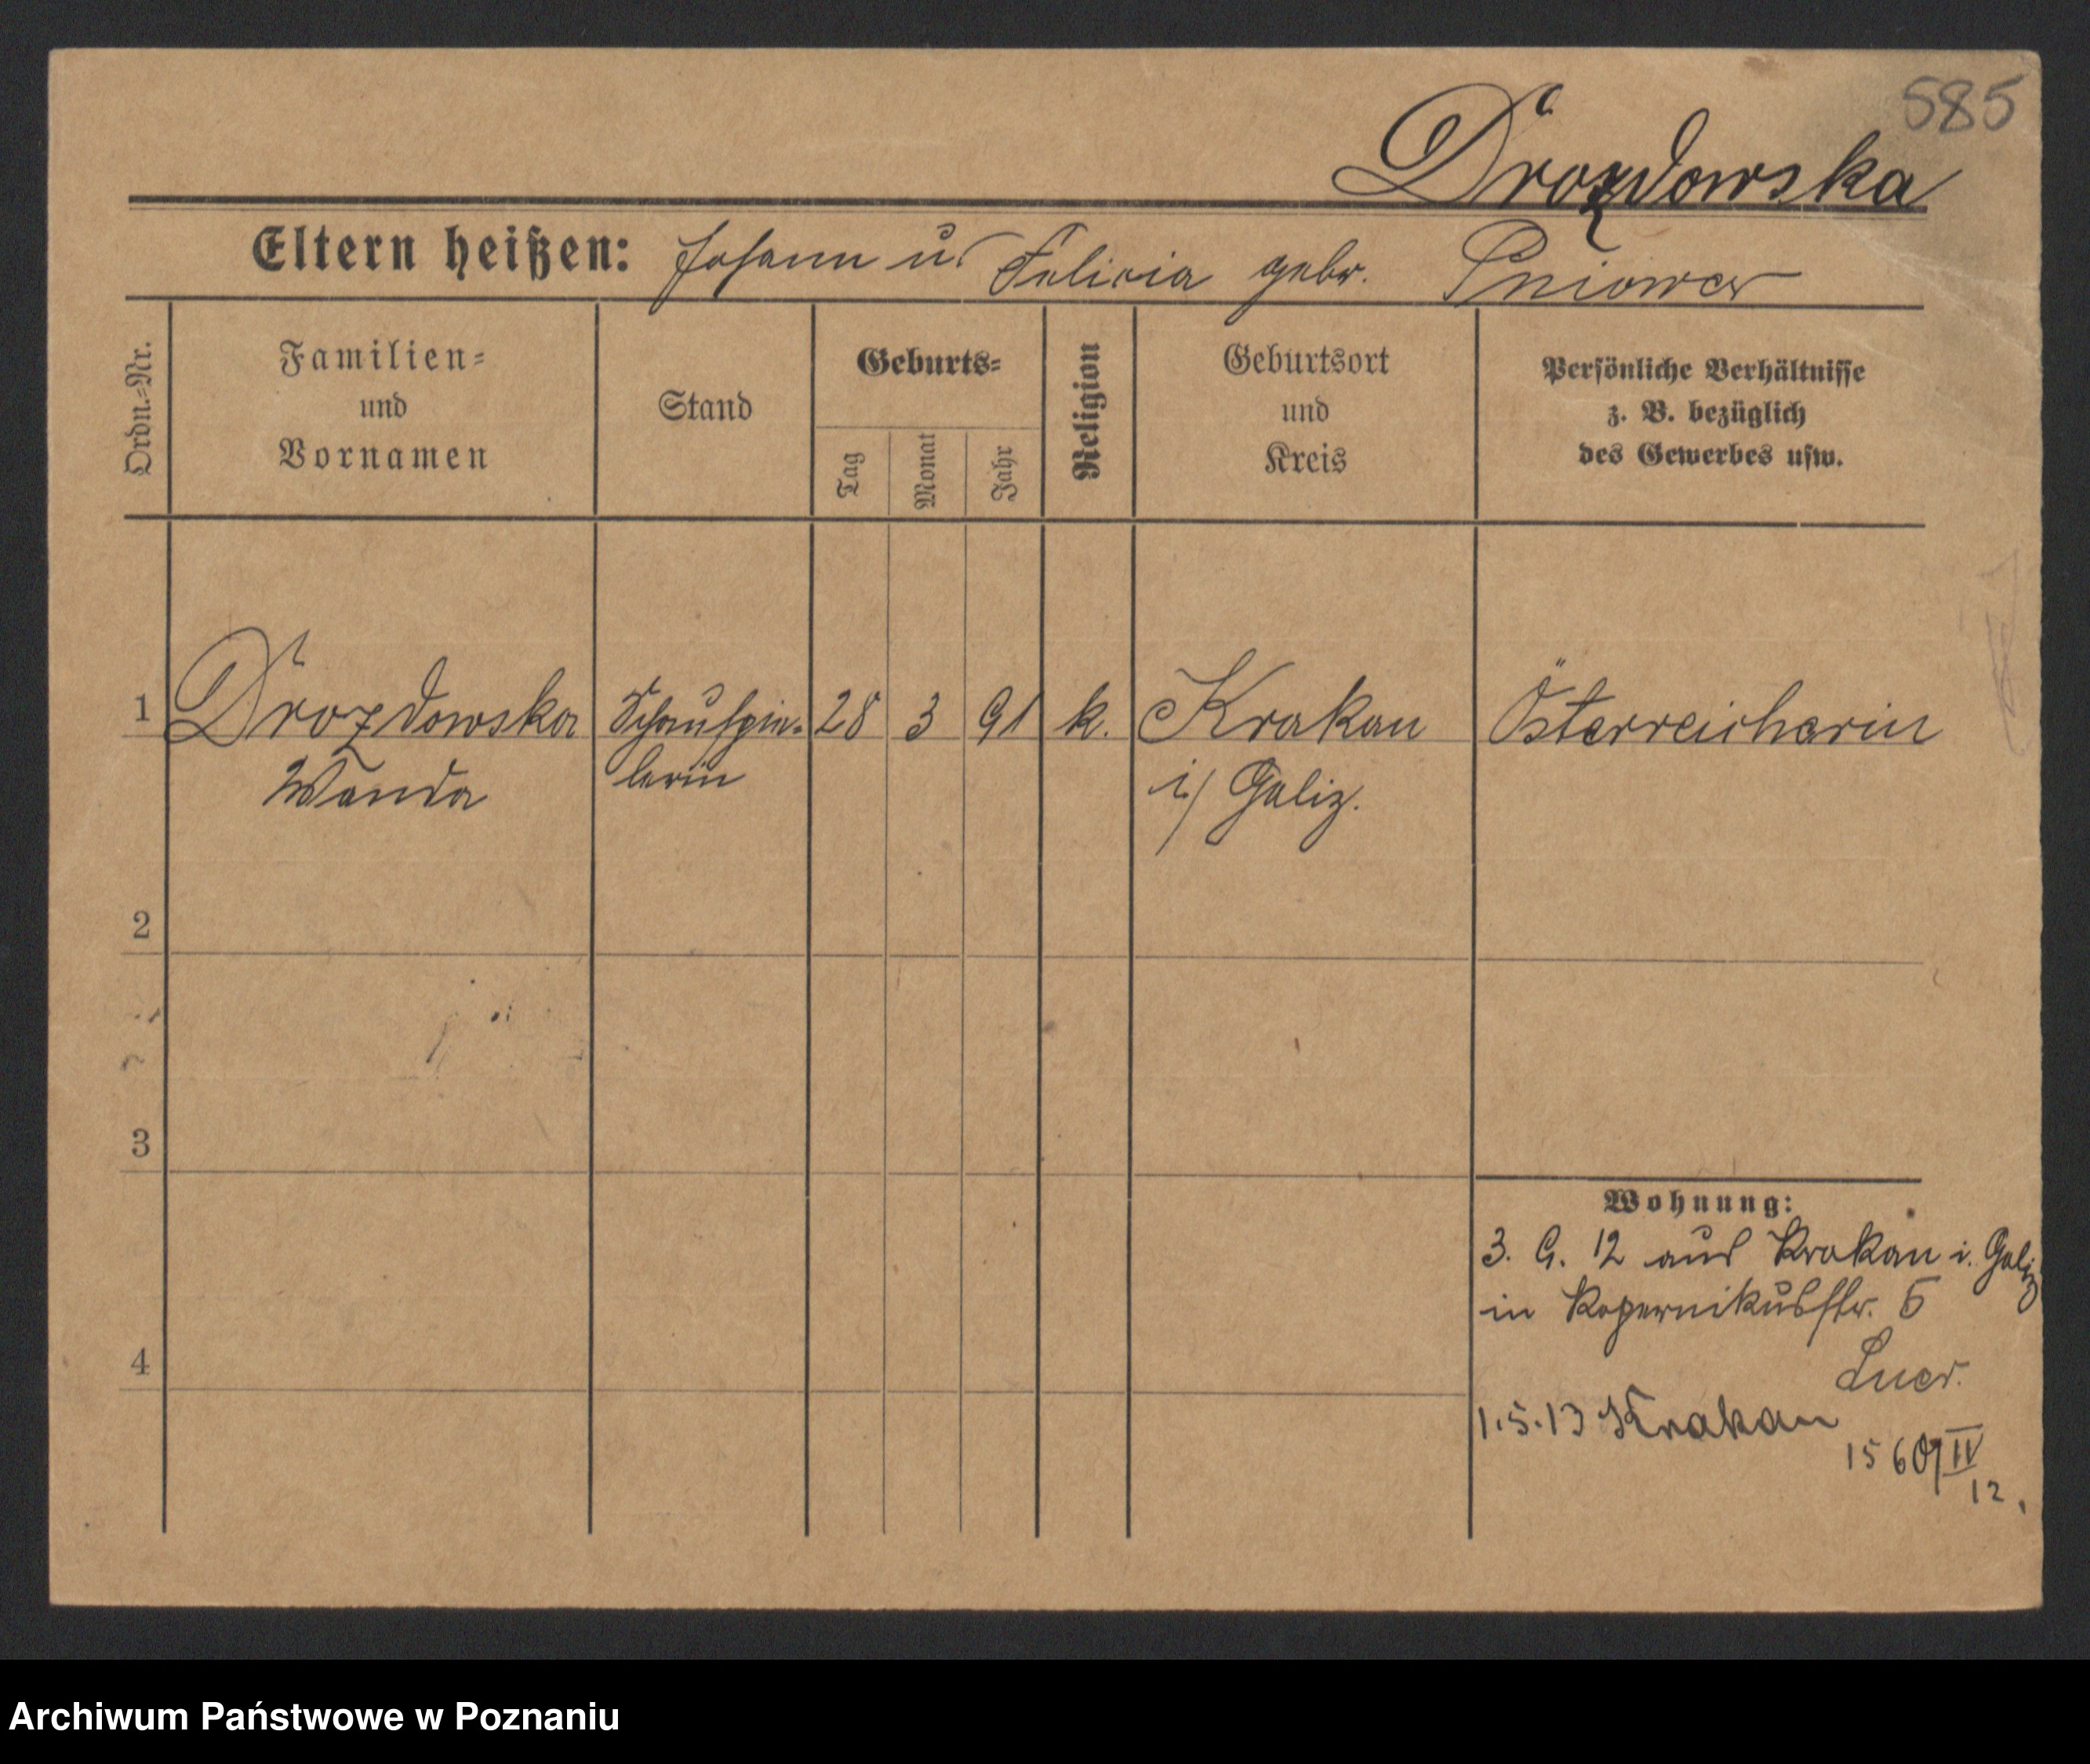 585
Drozdowska
Eltern heißen: Johann u. Felicia gebr. Pniower
Ordn.-Nr.
Familien-
und
Vornamen
Stand
Geburts-
Tag
Monat
Jahr
Religion
Geburtsort
und
Kreis
Persönliche Verhältnisse
z. B. bezüglich
des Gewerbes usw.
1 Drozdowska Schauspie- 28 3 91 k. Krakau Österreicherin
Wanda lerin i/ Galiz.
2
3
4
Wohnung:
3. 9. 12 aus Krakau i. Galiz
in Kopernikusstr. 5
1.5.13 Krakau
IV
12.
Archiwum Państwowe w Poznaniu